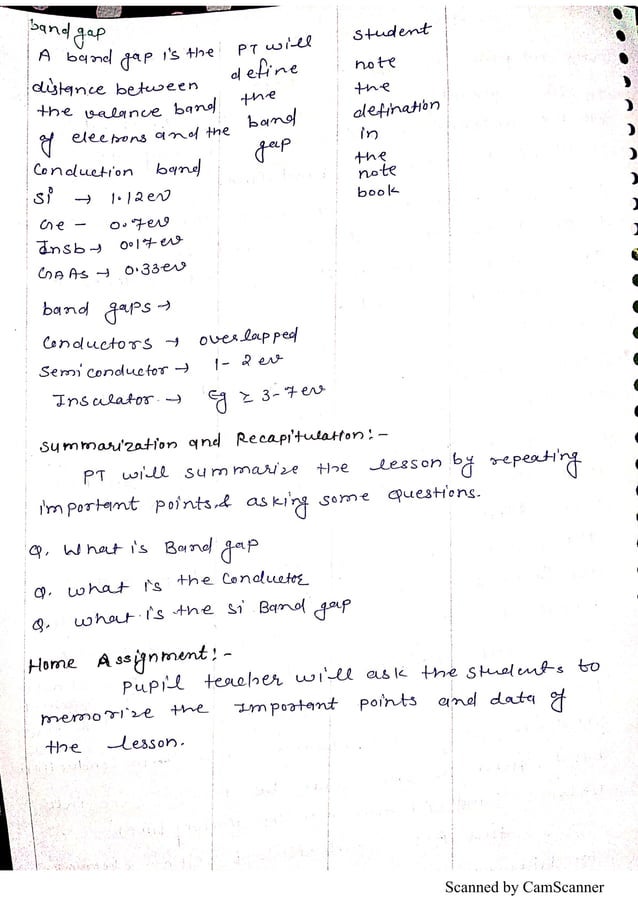 band gap
A band gap is the
distance between
the valance band
of elecrons and the
conduction band
PT will
define
the
band
gap
student
note
the
defination
in
the
note
book
Si → 1.12ev
Ge - 0.7ev
Insb → 0.17ev
GAAS → 0.33ev
band gaps →
Conductors → overlapped
Semiconductor → 1-2ev
Insulator → Eg ≥ 3-7ev
Summarization and Recapitulation:-
PT will summarize the lesson by repeating
important points & asking some questions.
Q. What is Band gap
Q. what is the Conductor
Q. what is the si Band gap
Home Assignment:-
Pupil teacher will ask the students to
memorize the important points and data of
the lesson.
Scanned by CamScanner